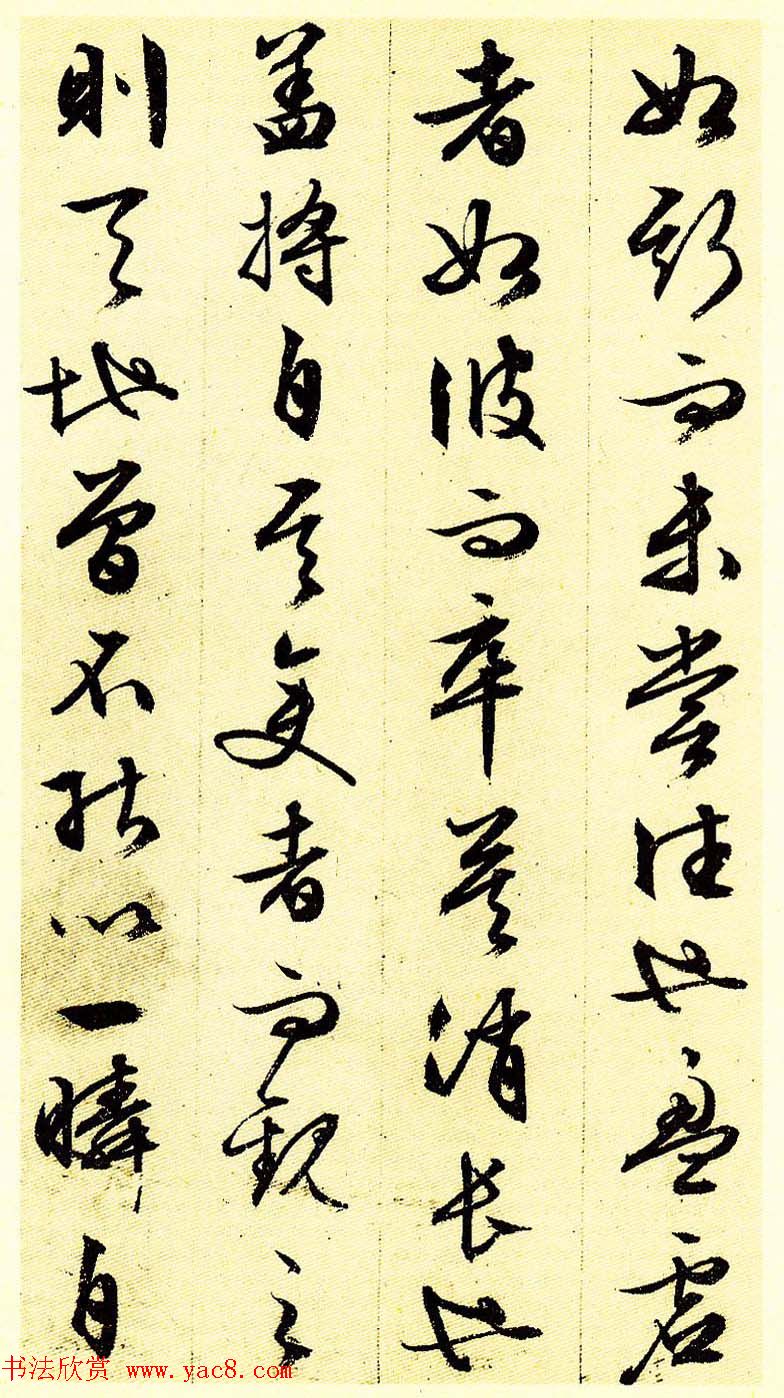 如斯而未嘗往也盈虛
者如彼而卒莫消長也
盖將自其変者而觀之
則天地曾不能以一瞬自
书法欣赏 www.yac8.com